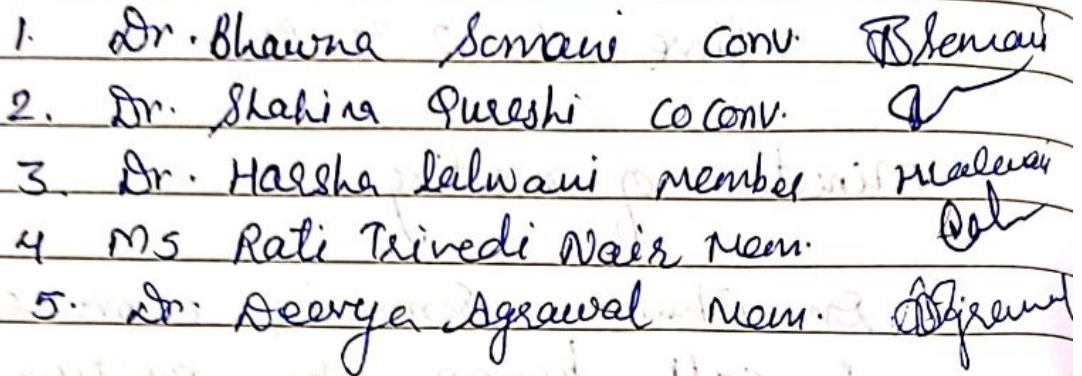 1. Dr. Bhawna Somani Conv. BSomani
2. Dr. Shahina Qureshi CoConv.
3. Dr. Harsha Lalwani Member
4 MS Rati Trivedi Nair Mem.
5. Dr. Agrawal Mem.